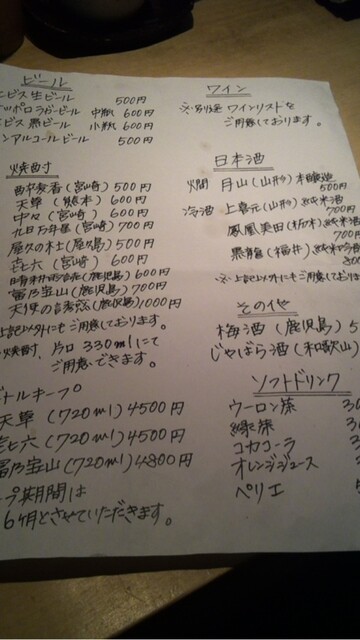 ビール
ビス生ビール 500円
ッポロラガービール 中瓶 600円
ビス黒ビール 小瓶 600円
ンアルコールビール 500円
焼酎
(宮崎) 500円
天草 (熊本) 600円
中々 (宮崎) 600円
700円
屋久の木土(屋久島) 500円
㐂六 (宮崎) 600円
(鹿児島) 600円
富乃宝山(鹿児島) 700円
天使の誘惑(鹿児島)1000円
上記以外にもご用意しております。
焼酎、片口 330mlにて
ご用意できます。
トルキープ
天草 (720ml) 4500円
㐂六 (720ml) 4500円
富乃宝山 (720ml) 4800円
プ期間は
6ヶ月とさせていただきます。
ワイン
※別途 ワインリストを
ご用意しております。
日本酒
燗 月山(山形)本醸造
500円
冷酒 上喜元(山形)純米酒
700円
鳳凰美田(栃木)純米酒
700円
黒龍(福井)純米吟
800
※上記以外にもご用意しておりま
その他
梅酒(鹿児島) 5
じゃばら酒(和歌山)
ソフトドリンク
ウーロン茶 30
緑茶 30
コカコーラ 3
オレンジジュース
ペリエ 5